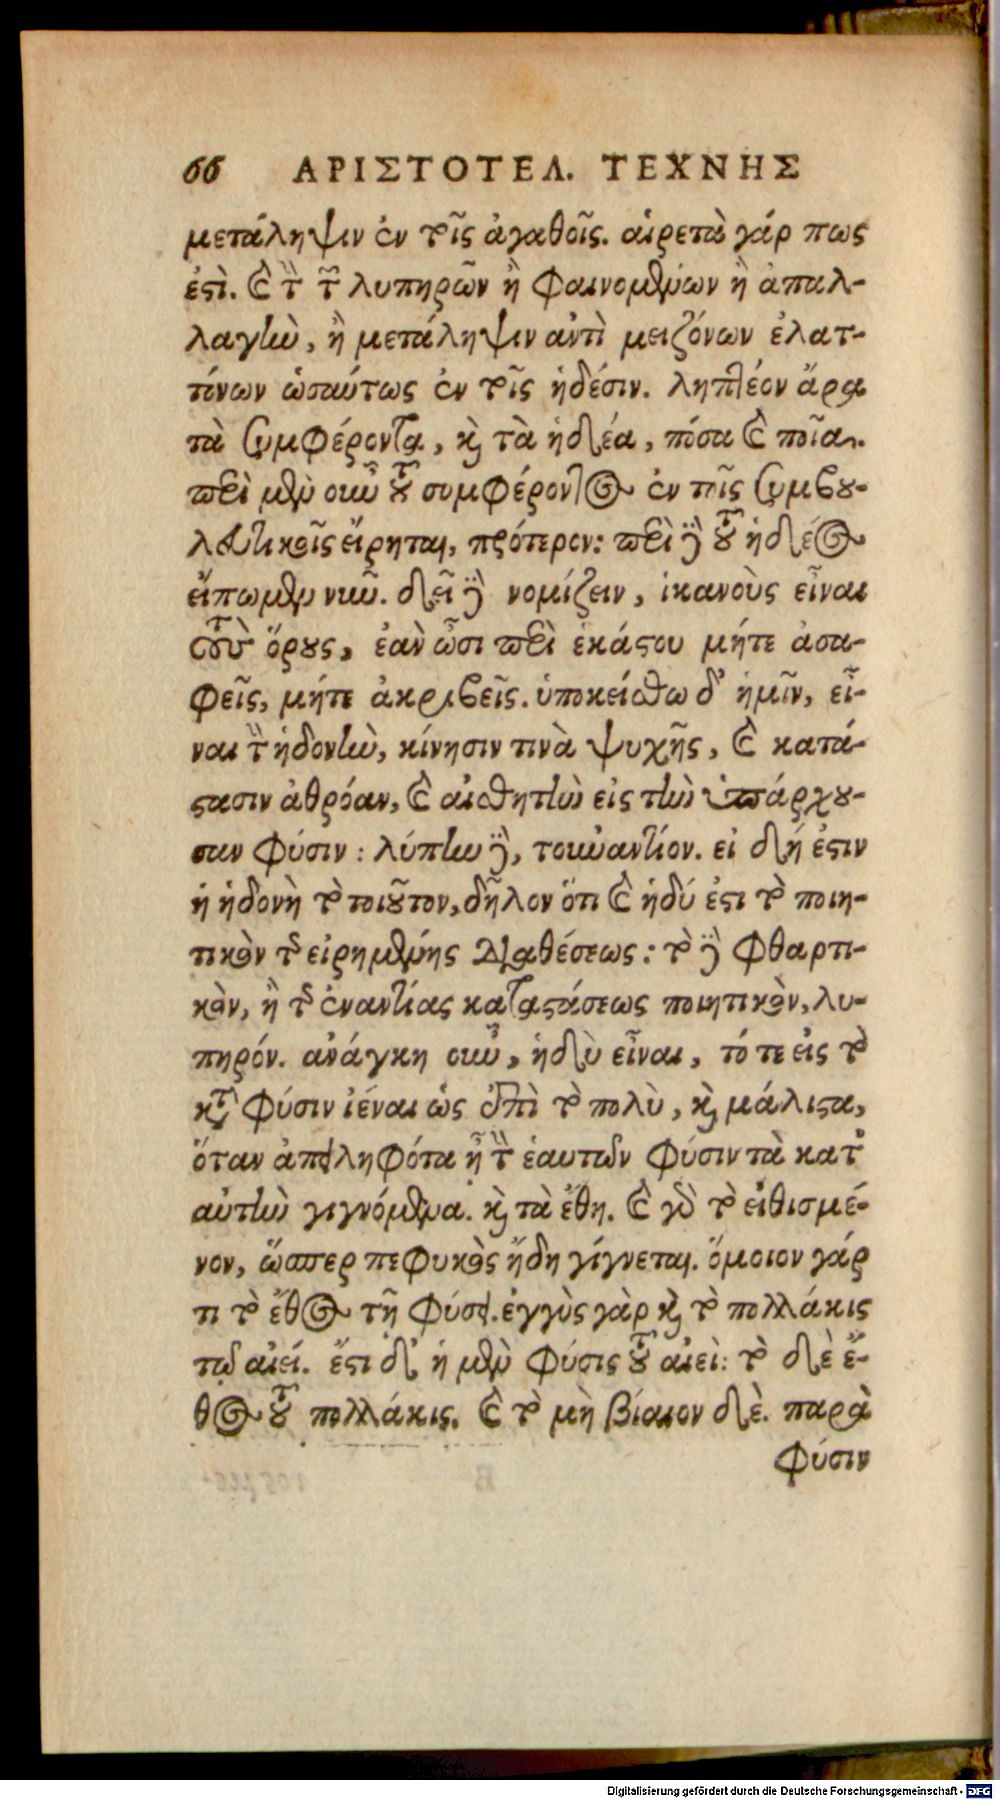 66 ΑΡΙΣΤΟΤΕΛ. ΤΕΧΝΗΣ
μετάληψιν ἐν τοῖς ἀγαθοῖς. αἱρετὰ γάρ πως
ἐστί. καὶ τὴν τῶν λυπηρῶν ἢ φαινομένων ἢ ἀπαλ-
λαγὴν, ἢ μετάληψιν ἀντὶ μειζόνων ἐλατ-
τόνων ὡσαύτως ἐν τοῖς ἡδέσιν. ληπτέον ἄρα
τὰ συμφέροντα, καὶ τὰ ἡδέα, πόσα καὶ ποῖα.
περὶ μὲν οὖν τοῦ συμφέροντος ἐν τοῖς συμβου-
λευτικοῖς εἴρηται, πρότερον: περὶ δὲ τοῦ ἡδέος
εἴπωμεν νῦν. δεῖ δὲ νομίζειν, ἱκανοὺς εἶναι
τοὺς ὅρους, ἐὰν ὦσι περὶ ἑκάστου μήτε ἀσα-
φεῖς, μήτε ἀκριβεῖς. ὑποκείσθω δ' ἡμῖν, εἶ-
ναι τὴν ἡδονὴν, κίνησιν τινὰ ψυχῆς, καὶ κατά-
στασιν ἀθρόαν, καὶ αἰσθητὴν εἰς τὴν ὑπάρχου-
σαν φύσιν: λύπην δὲ, τοὐναντίον. εἰ δή ἐστιν
ἡ ἡδονὴ τὸ τοιοῦτον, δῆλον ὅτι καὶ ἡδύ ἐστι τὸ ποιη-
τικὸν τῆς εἰρημένης διαθέσεως: τὸ δὲ φθαρτι-
κὸν, ἢ τῆς ἐναντίας καταστάσεως ποιητικὸν, λυ-
πηρόν. ἀνάγκη οὖν, ἡδὺ εἶναι, τό τε εἰς τὸ
κατὰ φύσιν ἰέναι ὡς ἐπὶ τὸ πολὺ, καὶ μάλιστα,
ὅταν ἀπειληφότα ᾖ τὴν ἑαυτῶν φύσιν τὰ κατ'
αὐτὴν γιγνόμενα. καὶ τὰ ἔθη. καὶ γὰρ τὸ εἰθισμέ-
νον, ὥσπερ πεφυκὸς ἤδη γίγνεται. ὅμοιον γάρ
τι τὸ ἔθος τῇ φύσει. ἐγγὺς γὰρ καὶ τὸ πολλάκις
τῷ αἰεί. ἔστι δ' ἡ μὲν φύσις τοῦ αἰεὶ: τὸ δὲ ἔ-
θος τοῦ πολλάκις. καὶ τὸ μὴ βίαιον δὲ. παρὰ
φύσιν
Digitalisierung gefördert durch die Deutsche Forschungsgemeinschaft - DFG